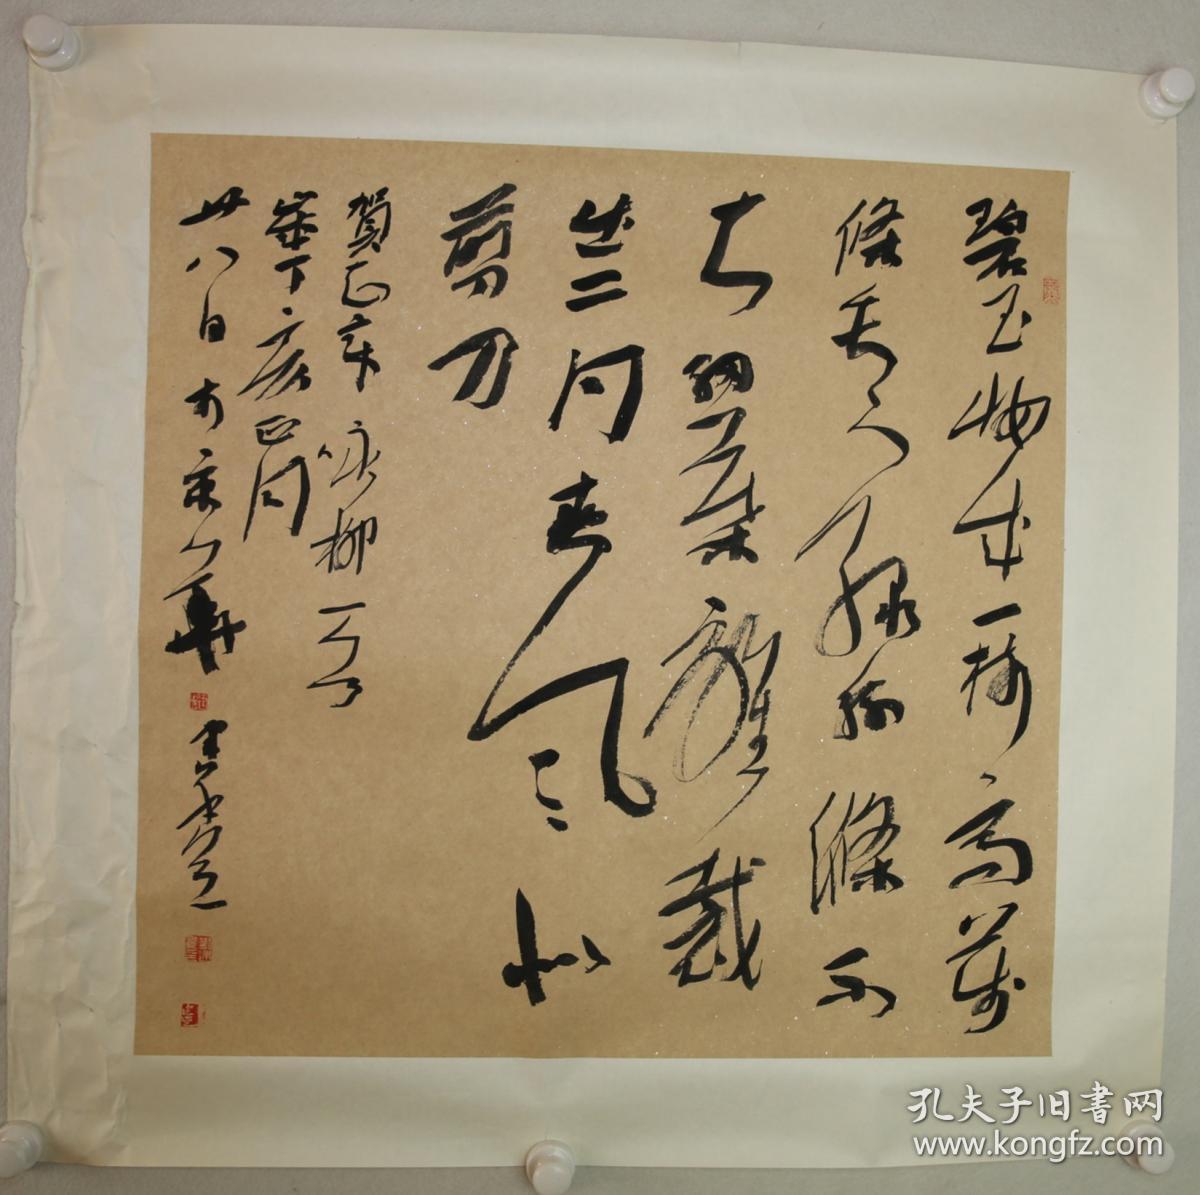 碧玉妝成一樹高萬
條垂下綠絲絛不
知細葉誰裁
出二月春風似
剪刀
賀知章詠柳一首
歲丁亥正月
廿八日於京華
孔夫子旧書网
www.kongfz.com